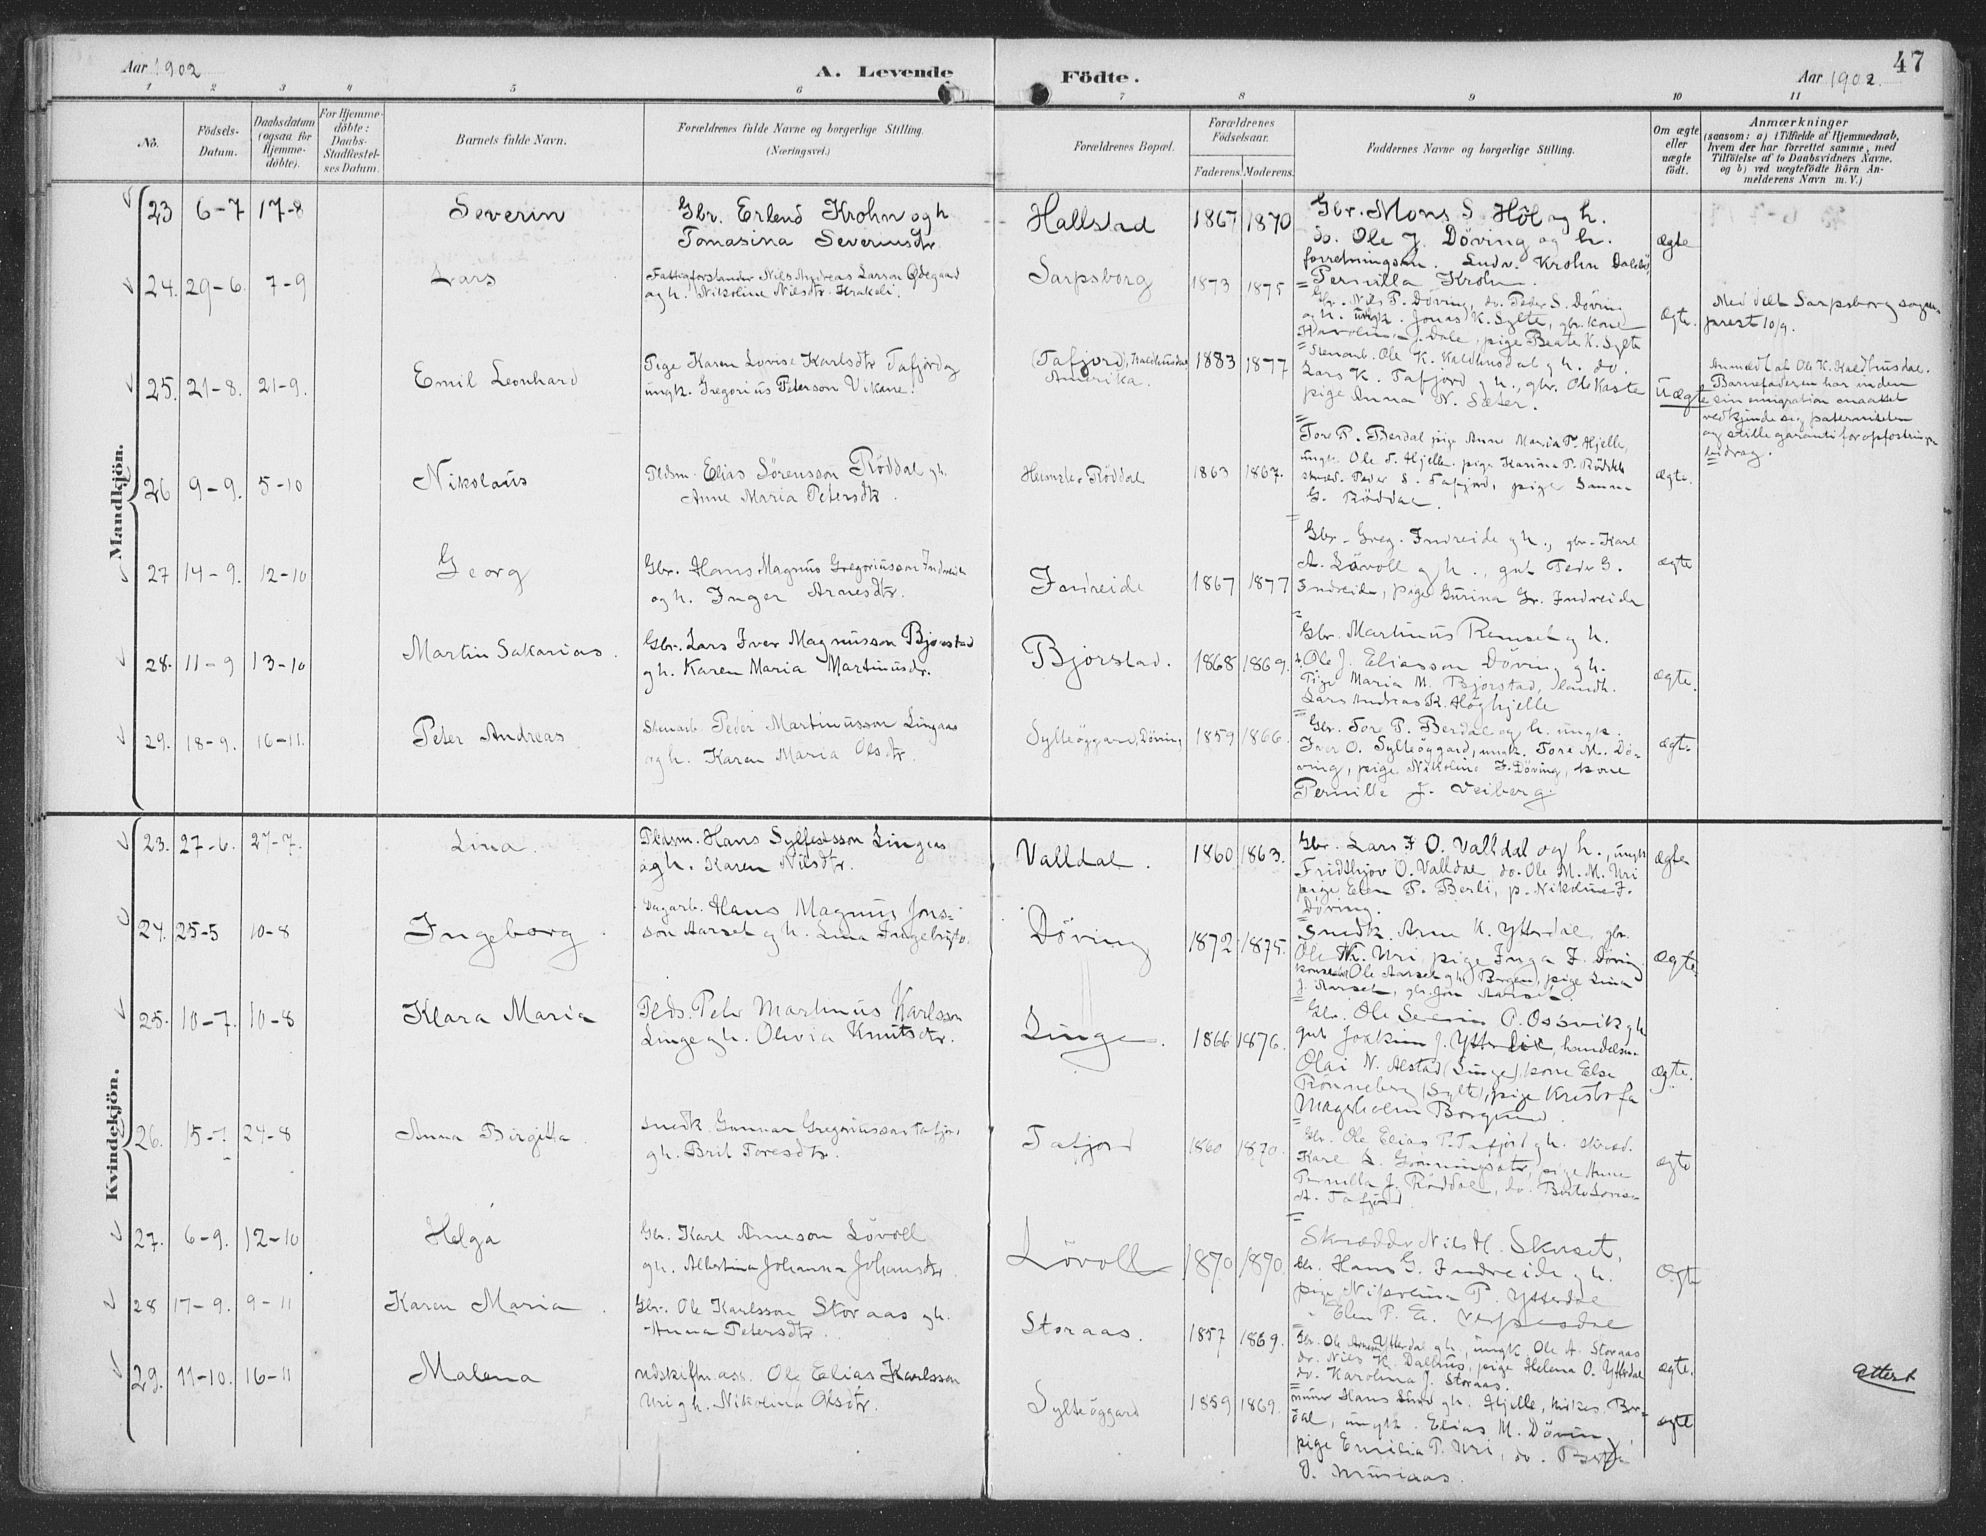 Aar 1902
A. Levende
Födte.
Aar 1902.
47
1 2 3 4 5 6 7 8 9 10 11
No.
Födsels-
Datum.
Daabsdatum
(ogsaa for
Hjemme-
döbte).
For Hjemme-
döbte:
Daabs-
Stadfæstel-
ses Datum.
Barnets fulde Navn.
Forældrenes fulde Navne og borgerlige Stilling.
(Næringsvei.)
Forældrenes Bopæl.
Forældrenes
Födselsaar.
Faderens. Moderens.
Faddernes Navne og borgerlige Stilling.
Om ægte
eller
uægte
födt.
Anmærkninger
(saasom: a) i Tilfælde af Hjemmedaab,
hvem der har forrettet samme, med
Tilföielse af to Daabsvidners Navne,
og b) ved uægtefödte Börn An-
melderens Navn m. V.)
Mandkjön.
23 6-7 17-8
Severin
Gbr. Erlend Krohn og h.
Tomasina Severinsdtr.
Hallstad
1867 1870
Gbr. Mons S. Höl og h.
do. Ole J. Döving og h.
Krohn
Pernilla Krohn.
ægte
24. 29-6. 7-9
Lars
Fattigforstander Nils Andreas Larson Ödegaard
og h. Nikoline Nilsdtr.
Sarpsborg
1873 1875
Gbr. Nils P. Döving, do. Peder S. Döving
og h. ungk. Jonas K. Sylte, gbr. kone
Dale, pige Beate K. Sylte
ægte.
Med delt Sarpsborg
10/9.
25. 21-8. 21-9.
Emil Leonhard
Pige Karen Lovise Karlsdtr Tafjord og
ungk. Gregorius Peterson Vikane.
(Tafjord), Kaldhusdal
Amerika.
1883 1877
Stenarb. Ole K. Kaldhusdal g h. do.
Lars K. Tafjord g h., gbr. Ole Kaste
pige Anna N. Sæter.
Uægte
Anmeldt af Ole K. Kaldhusdal.
Barnefaderen har inden
sin emigration
vedkjende sig paterniteten
og stille garanti for opfostrings-
bidrag.
26 9-9. 5-10
Nikolaus
Pldsm. Elias Sörensson Röddal gh.
Anne Maria Petersdtr.
Röddal
1863 1867.
Tore P. Berdal pige Anne Maria P. Hjelle,
ungk. Ole T. Hjelle, pige Karina P.
Peder S. Tafjord, pige
G. Röddal.
ægte.
27 14-9. 12-10
Georg
Gbr. Hans Magnus Gregoriusson Indreide
og h. Inger Arnesdtr.
Indreide
1867 1877
Gbr. Greg. Indreide g h., gbr. Karl
A. Lövoll g h., gut Peder G.
Indreide, pige Gurina Gr. Indreide
ægte
28. 11-9 13-10
Martin Sakarias.
Gbr. Lars Iver Magnusson Bjorstad
g h. Karen Maria Martinusdr.
Bjorstad.
1868 1869.
Gbr. Martinus Remset g h.
Ole J. Eliasson Döving g h.
Pige Maria M. Bjorstad,
Lars Andreas K.
ægte.
29. 18-9. 16-11.
Peter Andreas
Stenarb. Peder Martinusson Lingaas
og h. Karen Maria Olsdtr.
Sylteöggard, Döving
1859 1866.
Gbr. Tore P. Berdal og h. ungk.
Iver O. Sylteöggard, ungk. Tore M. Dö-
ving, pige Nikoline I. Döving, kone
Pernille J. Veiberg.
ægte
Kvindekjön.
23. 27-6. 27-7.
Lina.
Pldsm. Hans Sylfestsson Lingeas
og h. Karen Nilsdtr.
Valldal.
1860 1863.
Gbr. Lars I O. Valldal og h., ungk
Fridthjov O. Valldal, do. Ole M. M. Uri
pige Elen P. Berli, p. Nikoline I.
Döving.
ægte
24. 25-5 10-8
Ingeborg.
Dagarb. Hans Magnus Jons-
son Aarset g h. Lina
Döving
1872 1875.
Snedk. Arne K. Ytterdal, gbr.
Ole Uri, pige Inga I. Döving
Ole Aarset g h, pige Lina
J. Aarset, gbr. Jon Aarset.
ægte
25. 10-7. 10-8
Klara Maria
Plds. Peter Martinus Karlsson
Linge g h. Olivia Knutsdtr.
Linge.
1866 1876.
Gbr. Ole Severin P. Ossvik g h
gut Joakim J. Ytterli, handelsm.
Olai N. Alstad (Linge), kone Else
Rönneberg (Sylte), pige Kristofa
Magerholm Borgund.
ægte.
26. 15-7 24-8
Anna Birgitta
Snedk. Gunnar Gregoriusson Tafjord
g h. Brit Toresdtr.
Tafjord
1860 1870.
Gbr. Ole Elias P. Tafjord g h. skræd.
Karl S. Grönningsæter, pige Anne
Pernilla J. Röddal, do. Berte Lovise
A. Tafjord.
ægte
27. 6-9. 12-10
Helga
Gbr. Karl Arneson Lövoll
g h. Albertina Johanna Johansdtr.
Lövoll
1870 1870.
Skrædder Nils H. Skuset,
Gbr. Hans G. Indreide g h.
pige Nikolina P. Ytterdal
Elen P. E.
ægte
28 17-9. 9-11
Karen Maria.
Gbr. Ole Karlsson Storaas g h.
Anna Petersdtr.
Storaas.
1857 1869.
Gbr. Ole Ytterdal g h., ungk. Ole A. Storaas
do. Nils K. Dalhus, pige Helena O. Ytterdal
do. Karolina J. Storaas.
ægte.
29. 11-10. 16-11
Malena
Ole Elias Karlsson
Uri g h. Nikolina Olsdtr.
Sylteöggard
1859 1869.
Hans Lund g h. Hjelle, Ber-
dal, ungk. Elias M. Döving,
pige Emilia P. Uri, do.
O. Muriaas.
ægte
attest